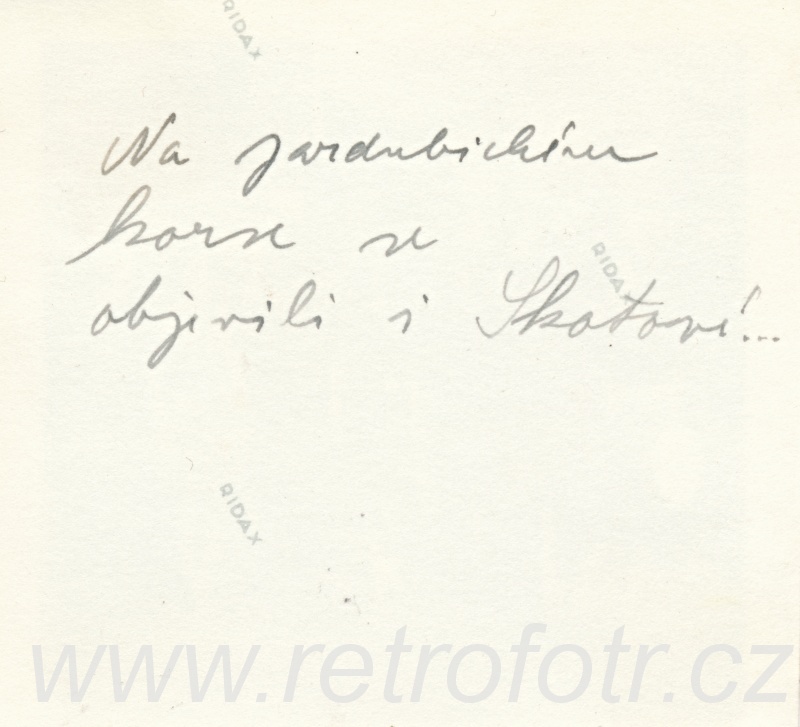 RIDAX
Na pardubickém
korse se
RIDAX
objevili i Skotové...
RIDAX
www.retrofotr.cz